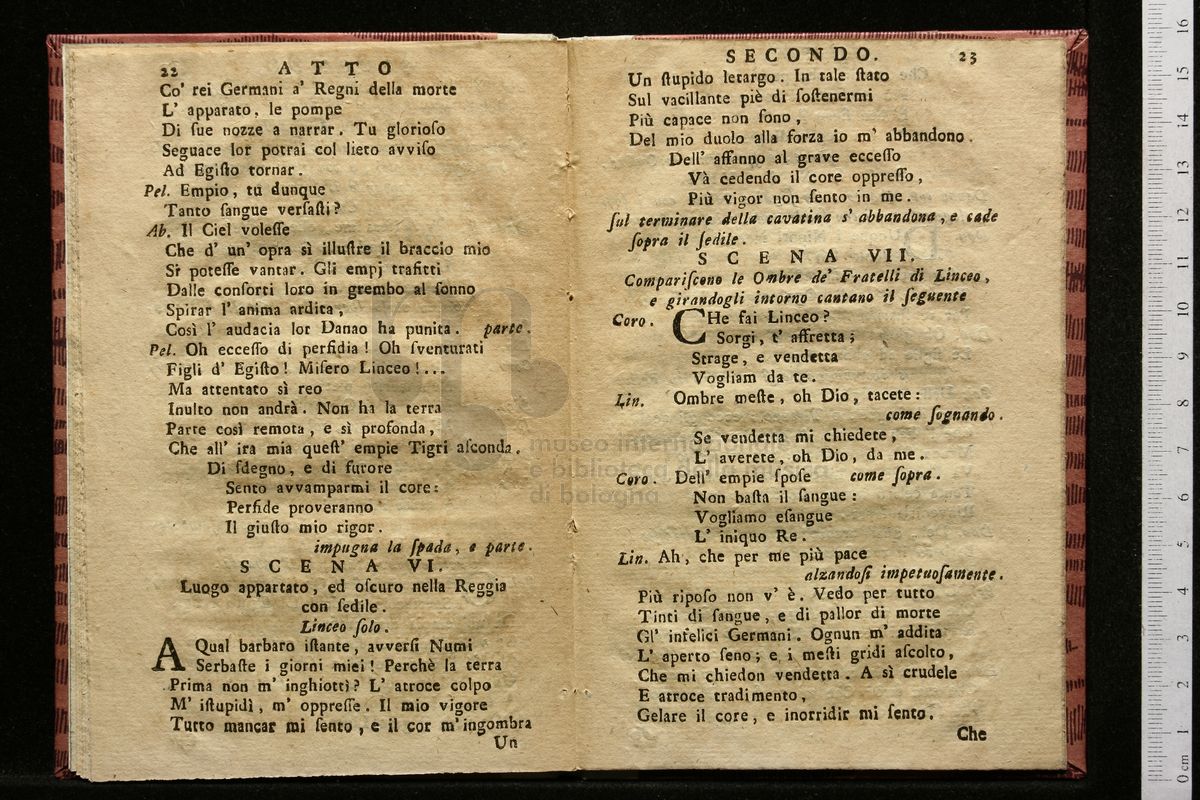 22 ATTO
Co' rei Germani a' Regni della morte
L' apparato, le pompe
Di ſue nozze a narrar. Tu glorioſo
Seguace lor potrai col lieto avviſo
Ad Egiſto tornar.
Pel. Empio, tu dunque
Tanto ſangue verſaſti?
Ab. Il Ciel voleſſe
Che d' un' opra sì illuſtre il braccio mio
Si poteſſe vantar. Gli empj trafitti
Dalle conſorti loro in grembo al ſonno
Spirar l' anima ardita,
Così l' audacia lor Danao ha punita. parte.
Pel. Oh ecceſſo di perfidia! Oh ſventurati
Figli d' Egiſto! Miſero Linceo!...
Ma attentato sì reo
Inulto non andrà. Non ha la terra
Parte così remota, e sì profonda,
Che all' ira mia queſt' empie Tigri aſconda.
Di ſdegno, e di furore
Sento avvamparmi il core:
Perfide proveranno
Il giuſto mio rigor.
impugna la ſpada, e parte.
SCENA VI.
Luogo appartato, ed oſcuro nella Reggia
con ſedile.
Linceo ſolo.
A Qual barbaro iſtante, avverſi Numi
Serbaſte i giorni miei! Perchè la terra
Prima non m' inghiottì? L' atroce colpo
M' iſtupidì, m' oppreſſe. Il mio vigore
Tutto mancar mi ſento, e il cor m' ingombra
Un
SECONDO. 23
Un ſtupido letargo. In tale ſtato
Sul vacillante piè di ſoſtenermi
Più capace non ſono,
Del mio duolo alla forza io m' abbandono.
Dell' affanno al grave ecceſſo
Và cedendo il core oppreſſo,
Più vigor non ſento in me.
ſul terminare della cavatina s' abbandona, e cade
ſopra il ſedile.
SCENA VII.
Compariſcono le Ombre de' Fratelli di Linceo,
e girandogli intorno cantano il ſeguente
Coro. CHe fai Linceo?
Sorgi, t' affretta;
Strage, e vendetta
Vogliam da te.
Lin. Ombre meſte, oh Dio, tacete:
come ſognando.
Se vendetta mi chiedete,
L' averete, oh Dio, da me.
Coro. Dell' empie ſpoſe come ſopra.
Non baſta il ſangue:
Vogliamo eſangue
L' iniquo Re.
Lin. Ah, che per me più pace
alzandoſi impetuoſamente.
Più ripoſo non v' è. Vedo per tutto
Tinti di ſangue, e di pallor di morte
Gl' infelici Germani. Ognun m' addita
L' aperto ſeno; e i meſti gridi aſcolto,
Che mi chiedon vendetta. A sì crudele
E atroce tradimento,
Gelare il core, e inorridir mi ſento.
Che
di bologna
0 cm 1 2 3 4 5 6 7 8 9 10 11 12 13 14 15 16